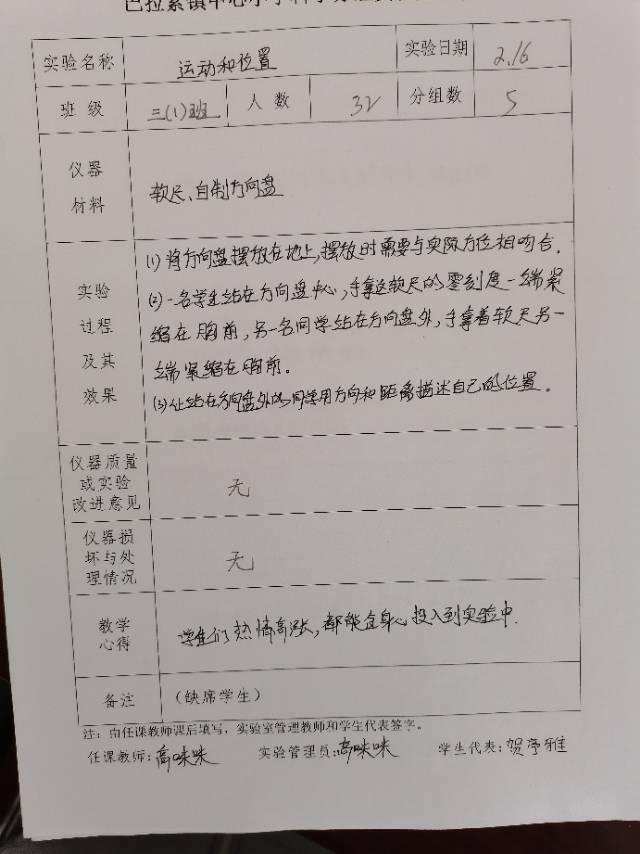 巴拉素镇中心小学科学
实验名称 运动和位置 实验日期 2.16
班级 三(1)班 人数 32 分组数 5
仪器
材料
软尺、自制方向盘
实验
过程
及其
效果
(1)将方向盘摆放在地上,摆放时需要与实际方位相吻合.
(2)一名学生站在方向盘中心,手拿这软尺的零刻度一端紧
缩在胸前,另一名同学站在方向盘外,手拿着软尺另一
端紧缩在胸前。
(3)让站在方向盘外的同学用方向和距离描述自己的位置.
仪器质量
或实验
改进意见
无
仪器损
坏与处
理情况
无
教学
心得
学生们热情高涨,都能全身心投入到实验中.
备注 (缺席学生)
注:由任课教师课后填写,实验室管理教师和学生代表签字。
任课教师:高咪咪 实验管理员:高咪咪 学生代表:贺亭雅